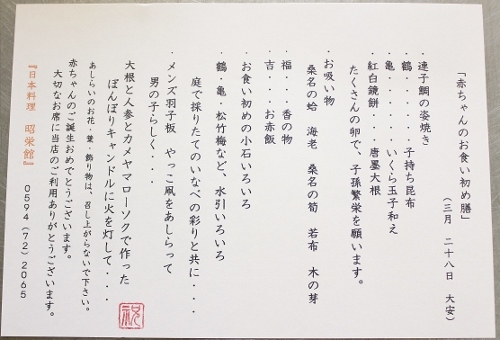 「赤ちゃんのお食い初め膳」
（三月 二十八日 大安）
・連子鯛の姿焼き
・鶴・・・・・子持ち昆布
・亀・・・・・いくら玉子和え
・紅白鏡餅・・・・唐墨大根
たくさんの卵で、子孫繁栄を願います。
・お吸い物
桑名の蛤 海老 桑名の筍 若布 木の芽
・福・・・香の物
・吉・・・お赤飯
・お食い初めの小石いろいろ
・鶴・亀・松竹梅など、水引いろいろ
庭で採りたてのいなべの彩りと共に・・・
・メンズ羽子板 やっこ凧をあしらって
男の子らしく・・・
大根と人参とカメヤマローソクで作った
ぼんぼりキャンドルに火を灯して・・・
あしらいのお花・葉・飾り物は、召し上がらないで下さい。
赤ちゃんのご誕生おめでとうございます。
大切なお席に当店のご利用ありがとうございます。
『日本料理 昭栄館』 0594（72）2065